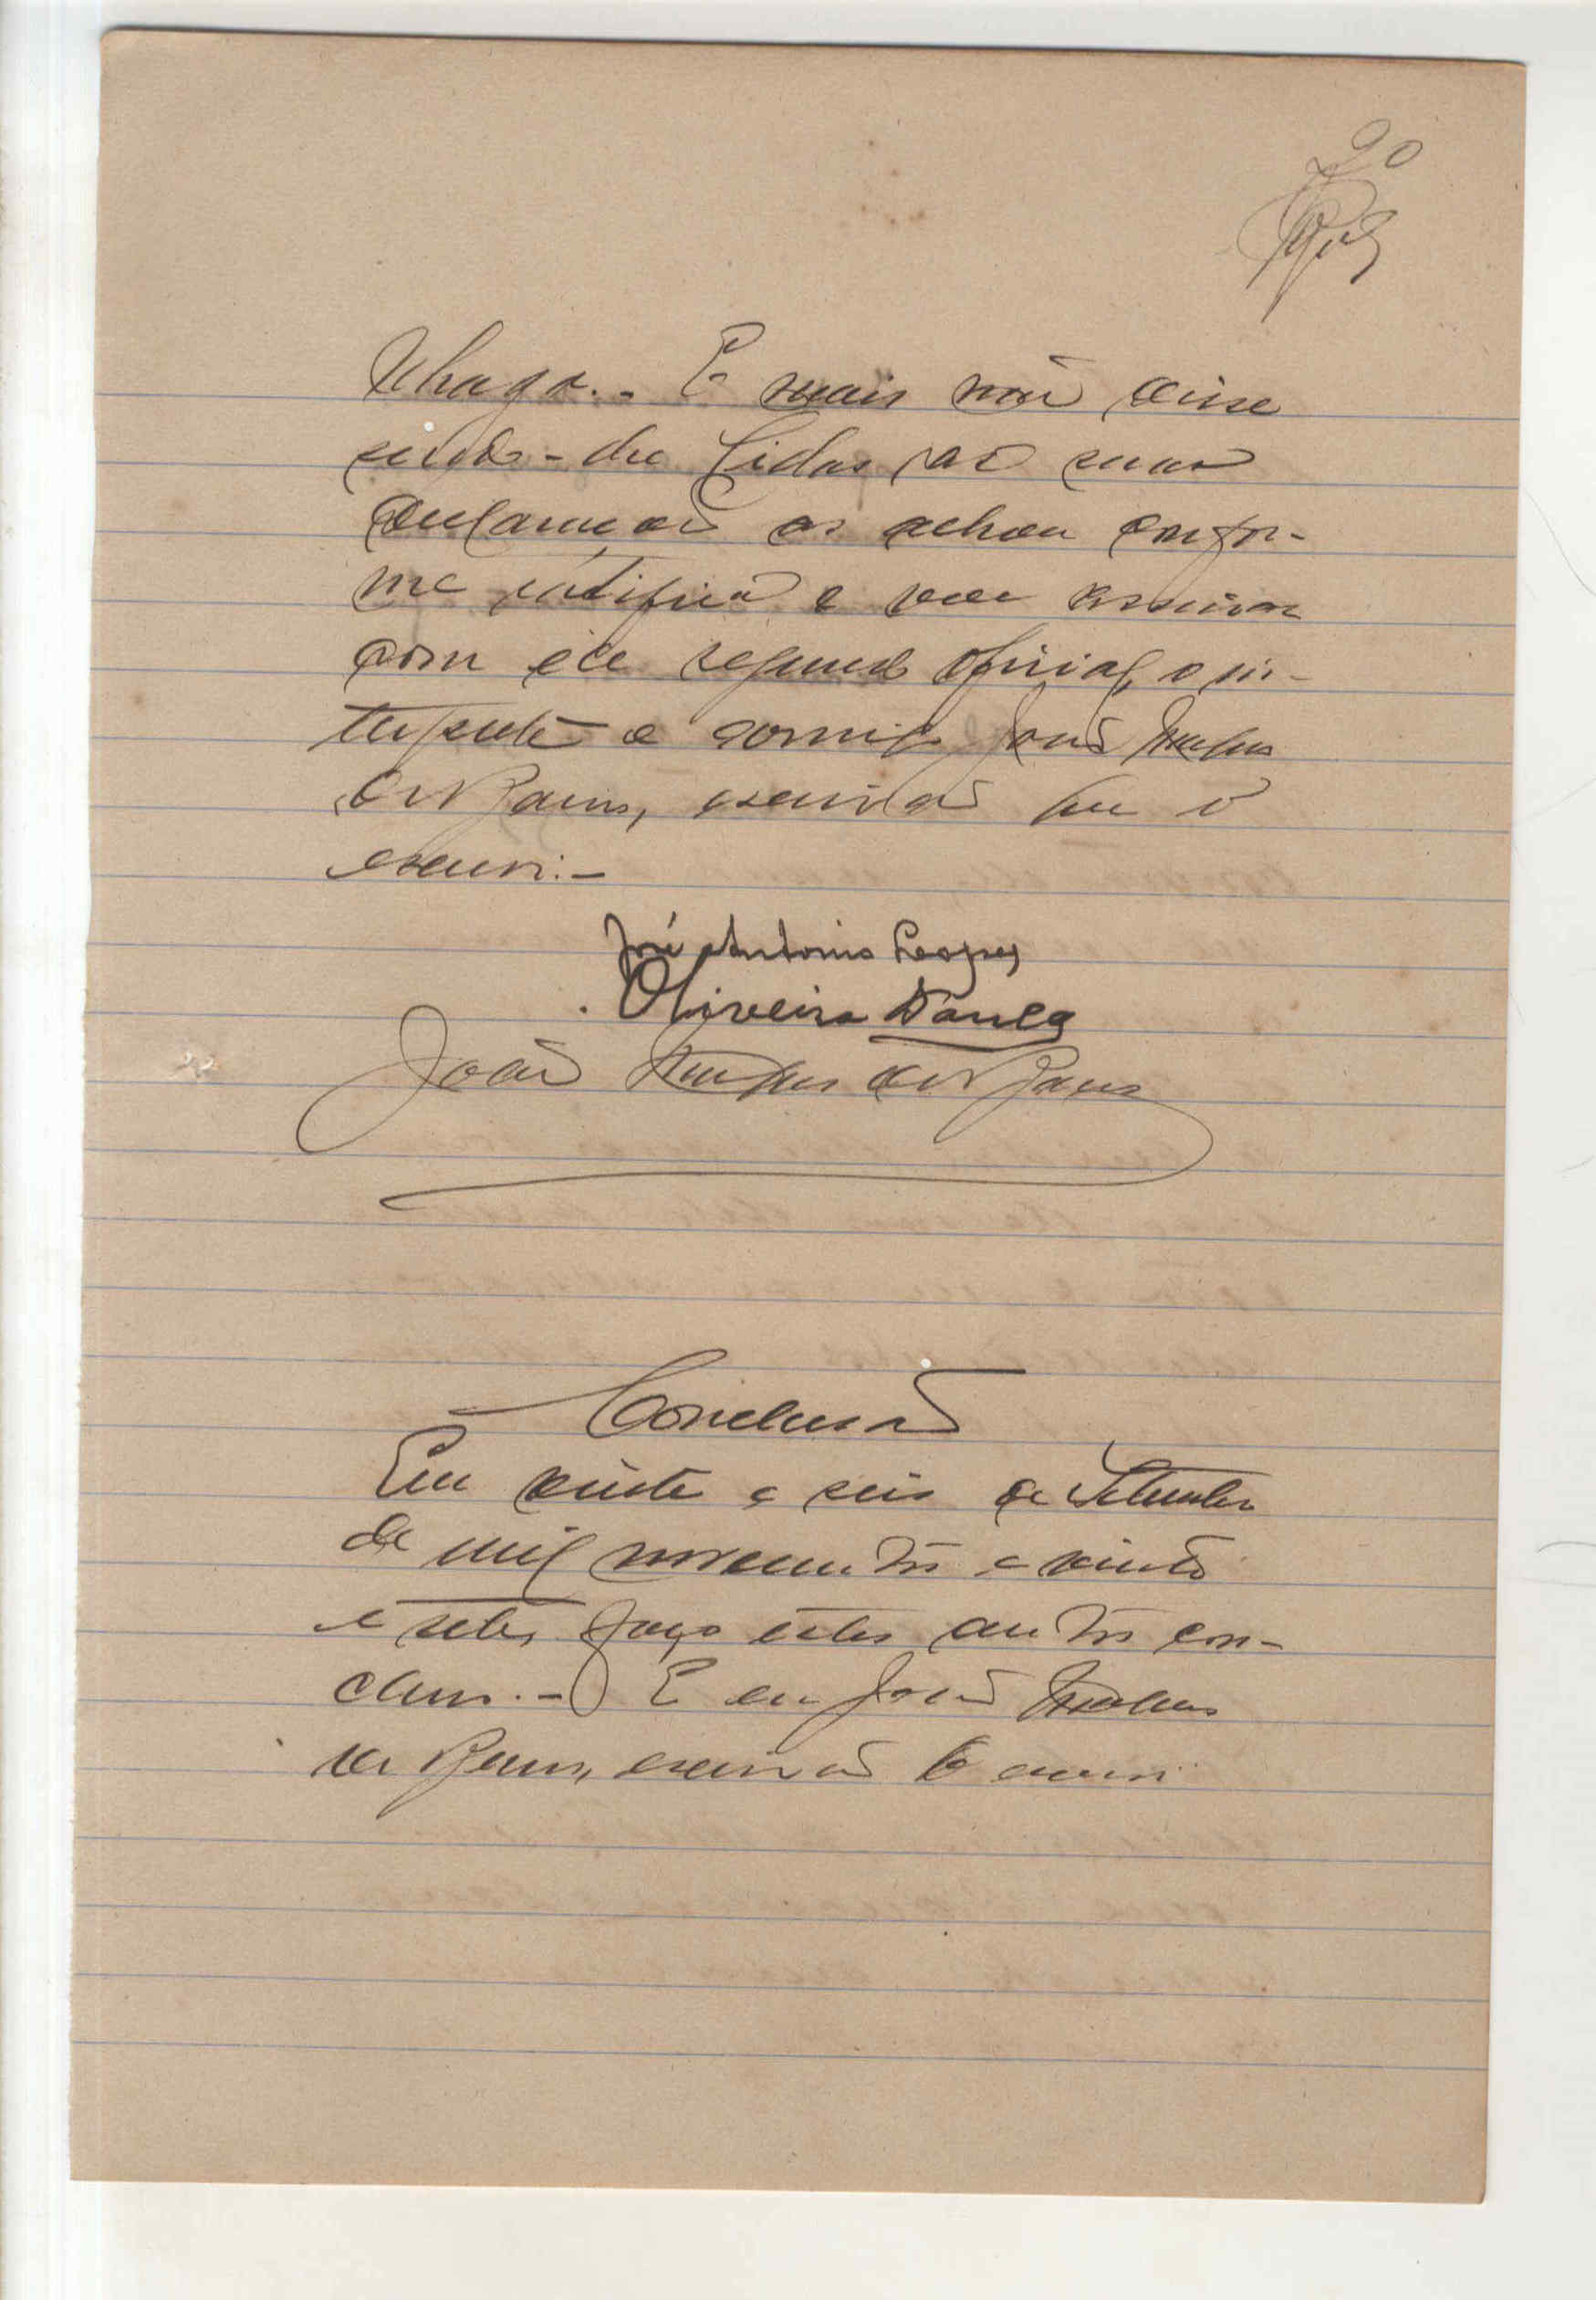 20
E mais não disse
sendo-lhe lidas as suas
declarações as achou confor-
me ratifica e vae assinar
com ele segundo oficial, o in-
terprete e comigo João
de Barros, escrivão que o
escrevi.-
José Antonio Lopes
Oliveira
João de Barros
Conclusão
Em vinte e seis de Setembro
de mil novecentos e vinte
e sete, faço estes autos con-
clusos.- E eu João
de Barros, escrivão o escrevi